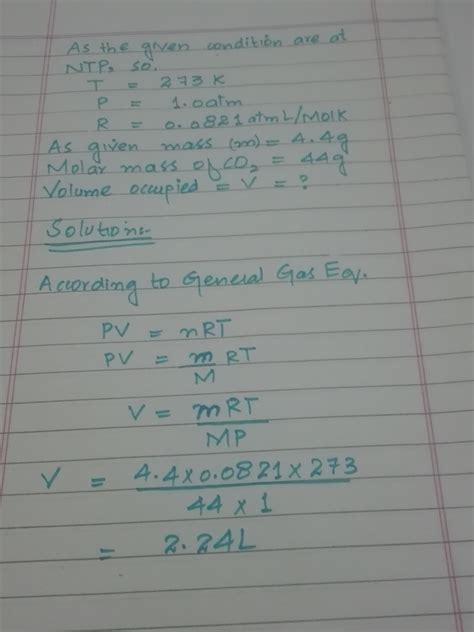 As the given condition are at
NTP, so.
T = 273 K
P = 1.0atm
R = 0.0821 atm L/MolK
As given mass (m) = 4.4g
Molar mass of CO₂ = 44g
Volume occupied = V = ?
Solution:-
According to General Gas Eq.
PV = nRT
PV = m/M RT
V = mRT/MP
V = 4.4 x 0.0821 x 273 / 44 x 1
= 2.24L